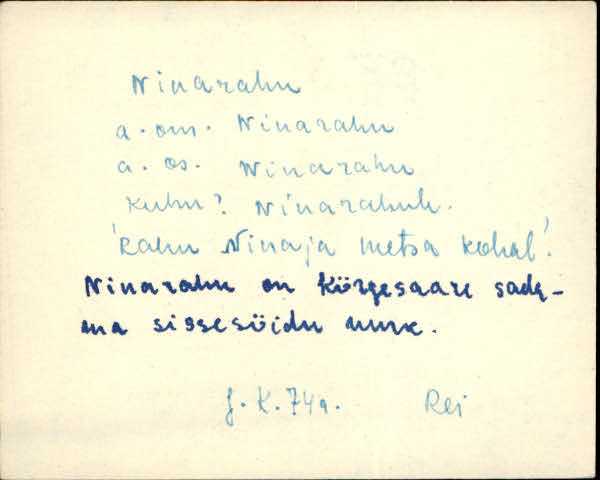 Ninarahu
a. om. Ninarahu
a. os. Ninarahu
kuhu? Ninarahule.
'Rahu Ninaja metsa kohal'.
Ninarahu on Kõrgesaare sada-
ma sissesõidu nurk.
J. K. 74a. Rei